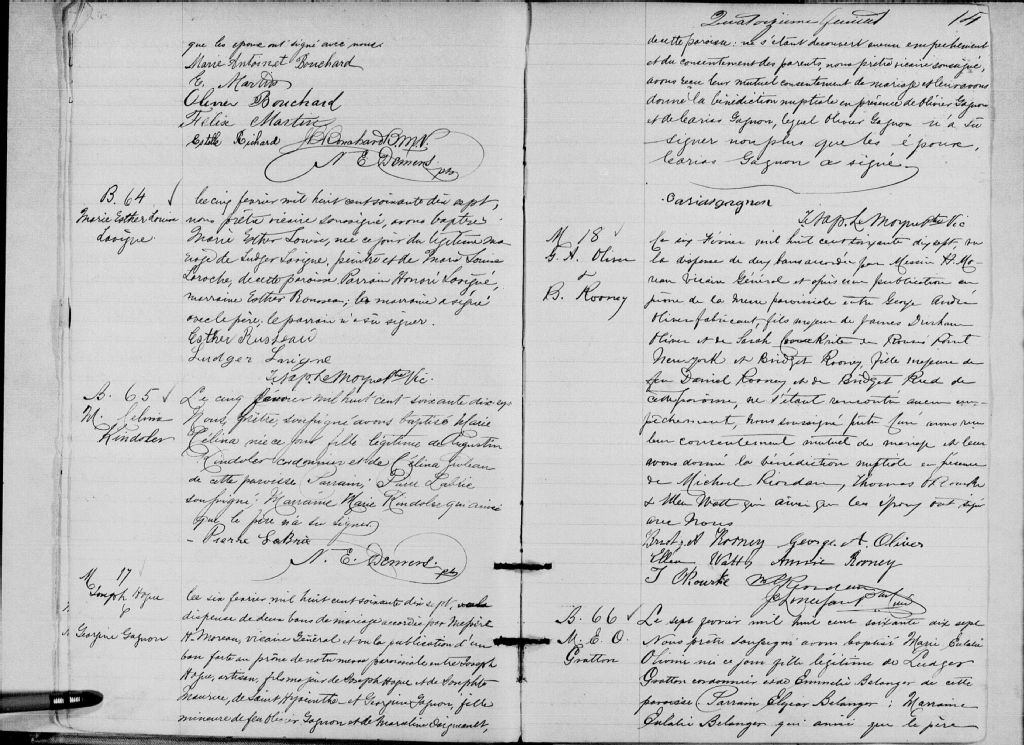 que les epoux ont signé avec nous.
Marie Antoinet Bouchard
E. Martin
Olivier Bouchard
Felix Martin
Estelle Richard Bouchard
N. E. Demers. ptre
B. 64
Marie Esther Louise
Lavigne
Le cinq fevrier mil huit cent soixante dix sept,
nous prêtre vicaire soussigné, avons baptisé
Marie Esther Louise, née ce jour du légitime ma
riage de Ludger Lavigne, peintre et de Marie Louise
Laroche, de cette paroisse Parrain Honoré Lavigne,
marraine Esther Rousseau; la marraine a signé
avec le père, le parrain n'a su signer.
Esther Rusteau
Ludger Lavigne
J. Nap. Le Moyne Ptre Vic.
B. 65
M. Celina
Kindoler
Le cinq février mil huit cent soixante dix sept
Nous, prêtre, soussigné avons baptisé Marie
Célina née ce jour fille légitime de Augustin
Kindoler cordonnier et de Célina
de cette paroisse Parrain, Pierre Labrie
soussigné. Marraine Marie Kindoler qui ainsi
que le père n'a su signer
- Pierre Labrie
N. E. Demers. ptre
M 17
Joseph Hogue
&
Georgine Gagnon
Le six fevrier mil huit cent soixante dix sept, vu la
dispense de deux bans de mariage accordée par Messire
H. Moreau, vicaire Général et vu la publication d'un
ban faite au prône de notre messe paroissiale entre Joseph
Hogue, artisan, fils majeur de Joseph Hogue et de Josephte
de Saint Hyacinthe et Georgine Gagnon, fille
mineure de feu Olivier Gagnon et de Marceline Daigneault,
Quatorzième feuillet 14
de cette paroisse: ne s'étant découvert aucun empêchement
et du consentement des parents, nous prêtre vicaire soussigné,
avons reçu leur mutuel consentement de mariage et leur avons
donné la bénédiction nuptiale en présence de Olivier Gagnon
et de Carias Gagnon, lequel Olivier Gagnon n'a su
signer non plus que les époux,
Carias Gagnon a signé.
Carias gagnon
J. Nap. Le Moyne Ptre Vic
M 18
G. A. Oliver
&
B. Rooney
Le six Février mil huit cent soixante dix sept, vu
la dispense de deux bans accordée par Messire H. Mo-
reau Vicaire Général et après une publication au
prône de la messe paroissiale entre George André
Oliver fabricant, fils majeur de James Durham
Oliver et de Sarah de Rouses Point
New york et Bridget Rooney, fille majeure de
feu Daniel Rooney et de Bridget Reed de
cette paroisse, ne s'étant rencontré aucun em-
pêchement, nous soussigné prêtre Curé avons reçu
leur consentement mutuel de mariage et leur
avons donné la bénédiction nuptiale en présence
de Michael Riordan, Thomas O'Rourke
& Ellen Watt qui ainsi que les époux ont signé
avec nous
Bridget Rooney George A. Oliver
Ellen Watts Annie Rooney
T ORourke M Riordan
B. 66
M. E. O.
Gratton
Le sept février mil huit cent soixante dix sept
Nous prêtre soussigné avons baptisé Marie Eulalie
Olivine née ce jour fille légitime de Ludger
Gratton cordonnier et de Emmelie Belanger de cette
paroisse Parrain Elzear Belanger; Marraine
Eulalie Belanger qui ainsi que le père